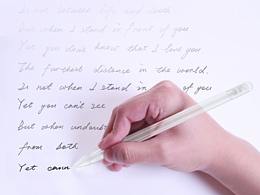 Is not between life and death
But when I stand in front of you
Yet you don't know that I love you
The furthest distance in the world.
Is not when I stand in of you
Yet you can't see
But when undoubt
from both
Yet cann